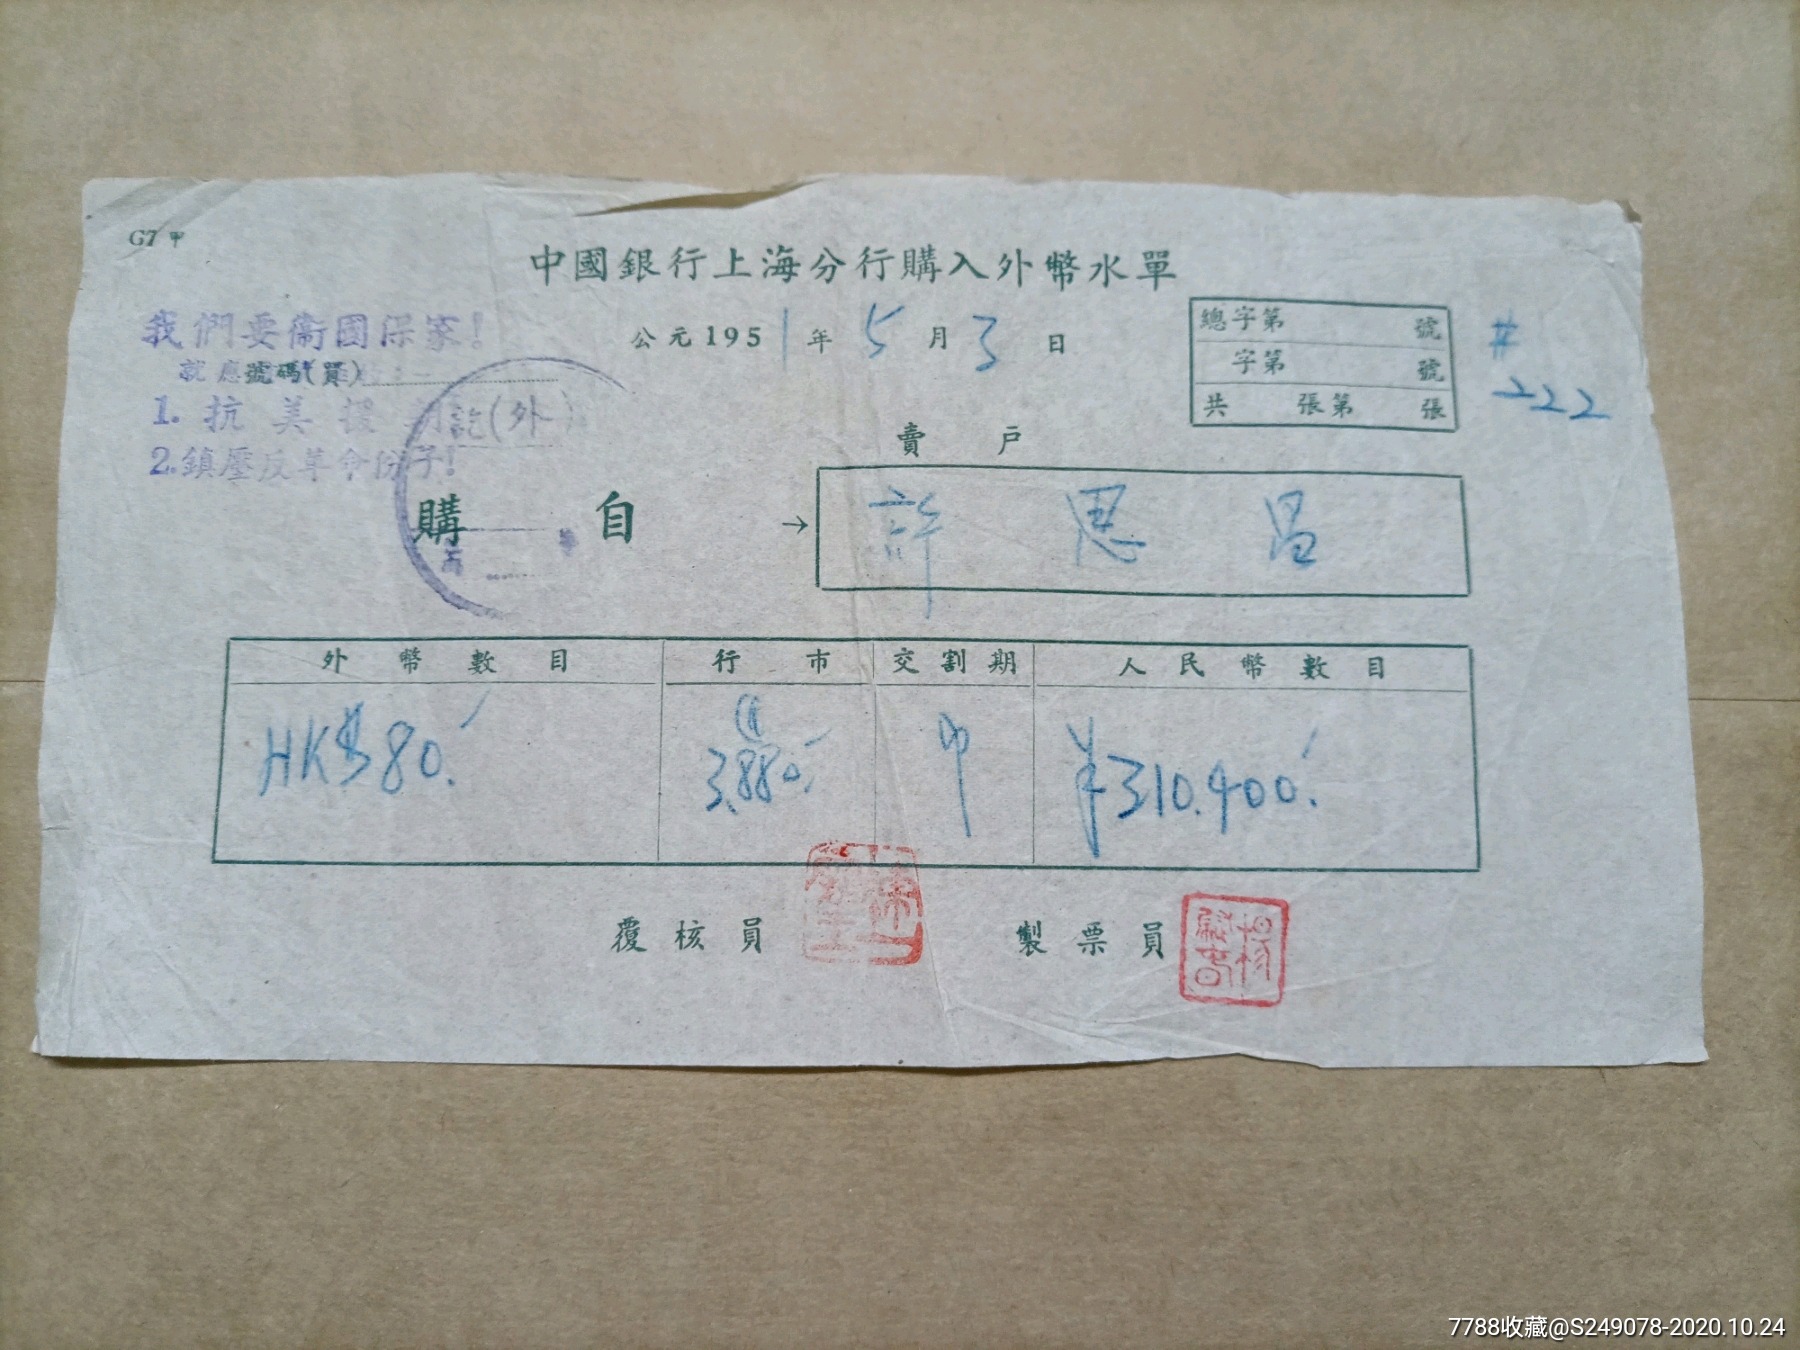 G7 甲
中國銀行上海分行購入外幣水單
公元1951年5月3日
總字第 號
字第 號
共 張第 張
#
222
我們要衞國保家!
就應號碼(買)
1. 抗美援
訖(外)
2.鎮壓反革命份子!
賣戶
購自 → 許思昌
外幣數目 行市 交割期 人民幣數目
HK$80. @3,880. 即 ¥310,400.
覆核員 製票員
楊
7788收藏@S249078-2020.10.24